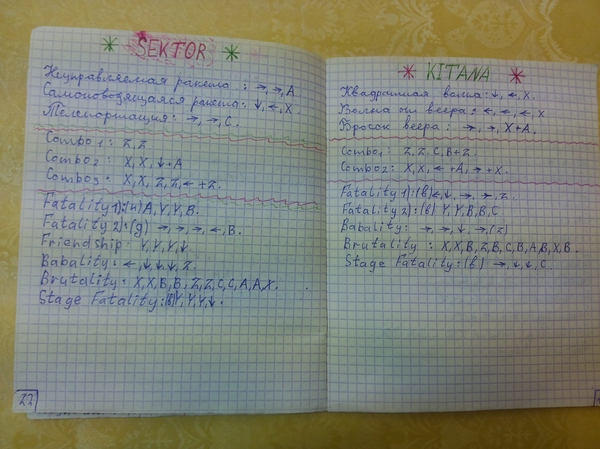 SEKTOR
Неуправляемая ракета : →, →, A
Самоноводящаяся ракета: ↓, ←, X.
Телепортация: →, →, C.
Combo 1 : Z, Z.
Combo 2 : X, X, ↓+A
Combo 3 : X, X, Z, Z, ← +Z.
Fatality 1):(н) A, Y, Y, B.
Fatality 2):(g) →, →, →, ←, B.
Friendship: Y, Y, Y, ↓
Babality: ←, ↓, ↓, ↓, Z.
Brutality: X, X, B, B, Z, Z, C, C, A, A, X.
Stage Fatality:(в) Y, Y, Y, ↓.
22
KITANA
Квадратная волна: ↓, ←, X.
Волна от веера: ←, ←, ←, X
Бросок веера: →, →, X+A.
Combo 1: Z, Z, C, B+Z.
Combo 2: X, X, ← +A, → +X.
Fatality 1):(в) ←, ↓, →, →, Z.
Fatality 2):(в) Y, Y, B, B, C.
Babality: →, →, ↓, → (Z)
Brutality : X, X, B, Z, B, C, B, A, B, X, B.
Stage Fatality: (в) →, ↓, ↓, C.